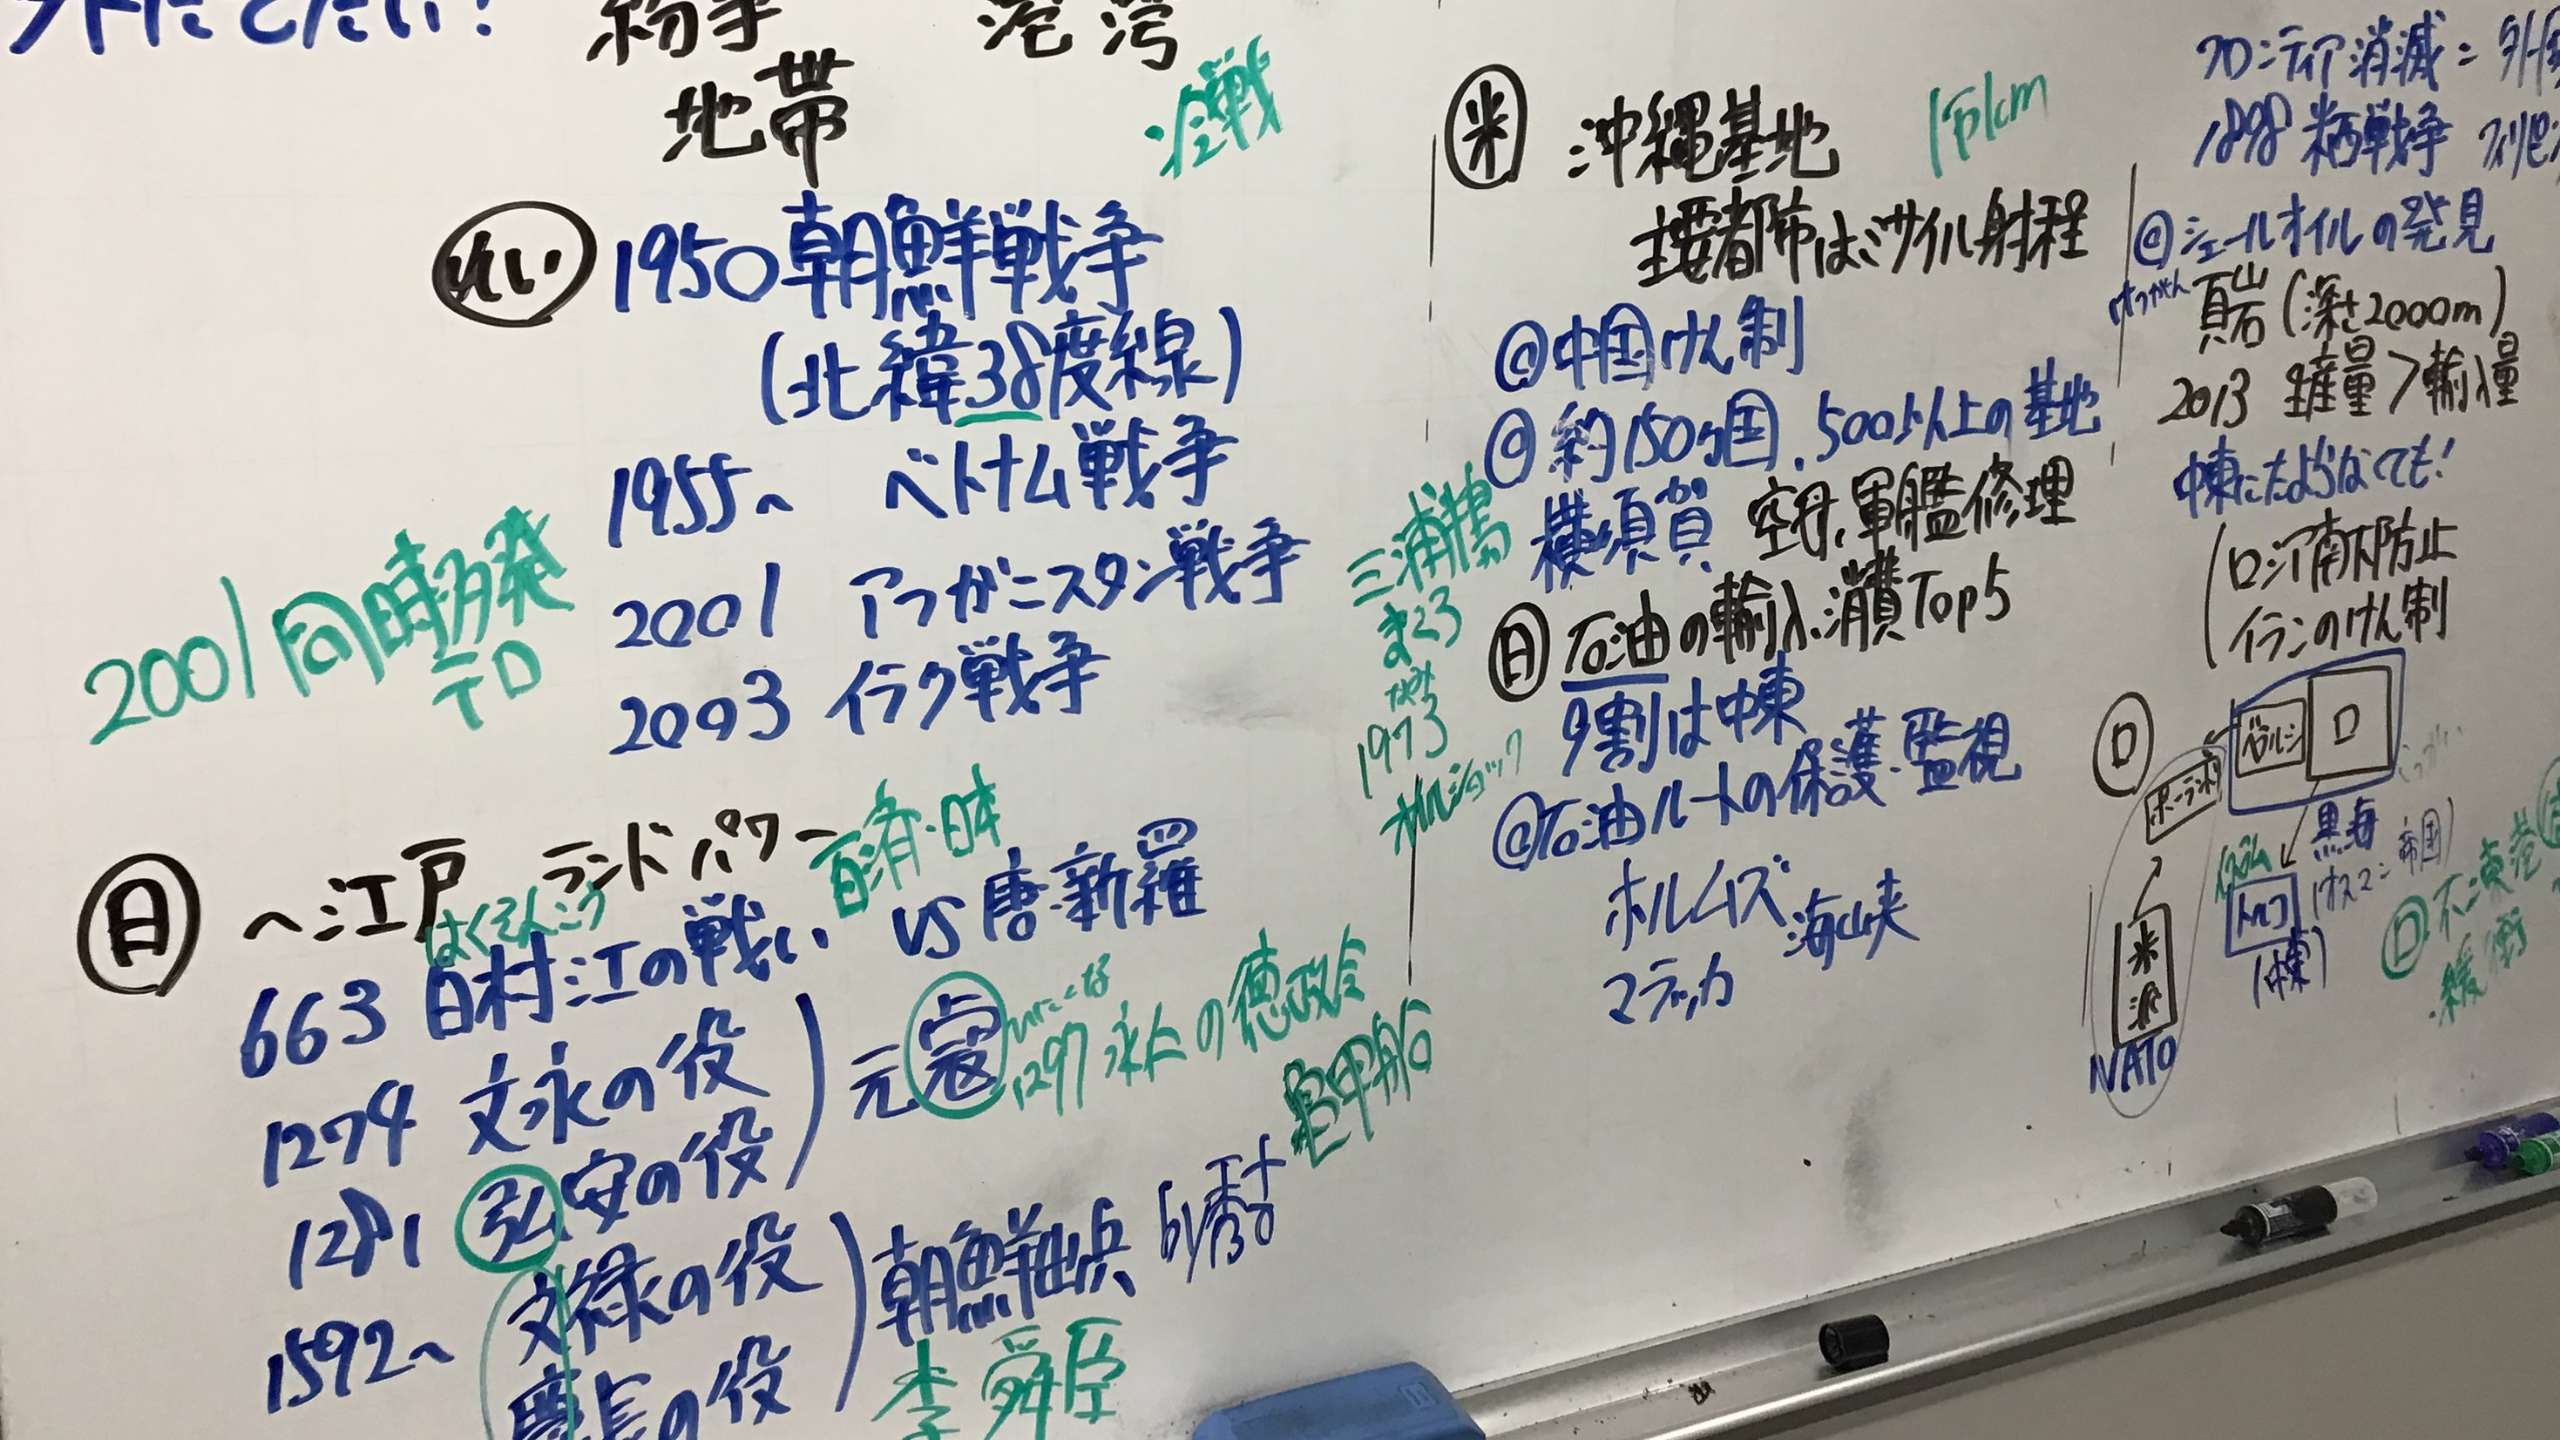 外にでたい!
紛争 港湾
地帯
冷戦
れい 1950 朝鮮戦争
(北緯38度線)
1955~ ベトナム戦争
2001 アフガニスタン戦争
2003 イラク戦争
2001 同時多発
テロ
日 ~江戸 ランドパワー
百済・日本
はくそんこう
663 白村江の戦い VS 唐・新羅
1274 文永の役
1281 弘安の役
元寇
1297 永仁の徳政令
1592~ 文禄の役
慶長の役
朝鮮出兵 by 秀吉
亀甲船
李舜臣
米 沖縄基地 1万km
主要都市はミサイル射程
@中国けん制
@約150ヶ国、500以上の基地
横須賀 空母、軍艦修理
三浦
まぐろ
1973
オイルショック
日 石油の輸入、消費Top5
9割は中東
@石油ルートの保護・監視
ホルムズ 海峡
マラッカ
フロンティア消滅=
1898 米西戦争 フィリピン
@シェールオイルの発見
けつがん 頁岩 (深さ2000m)
2013 生産量>輸入量
中東にたよらなくても!
ロシア南下防止
イランのけん制
ロ
ベラルーシ ロ
ポーランド
黒海
イスラム
トルコ
(オスマン帝国)
(中東)
米
派
NATO
ロ 不凍港
緩衝